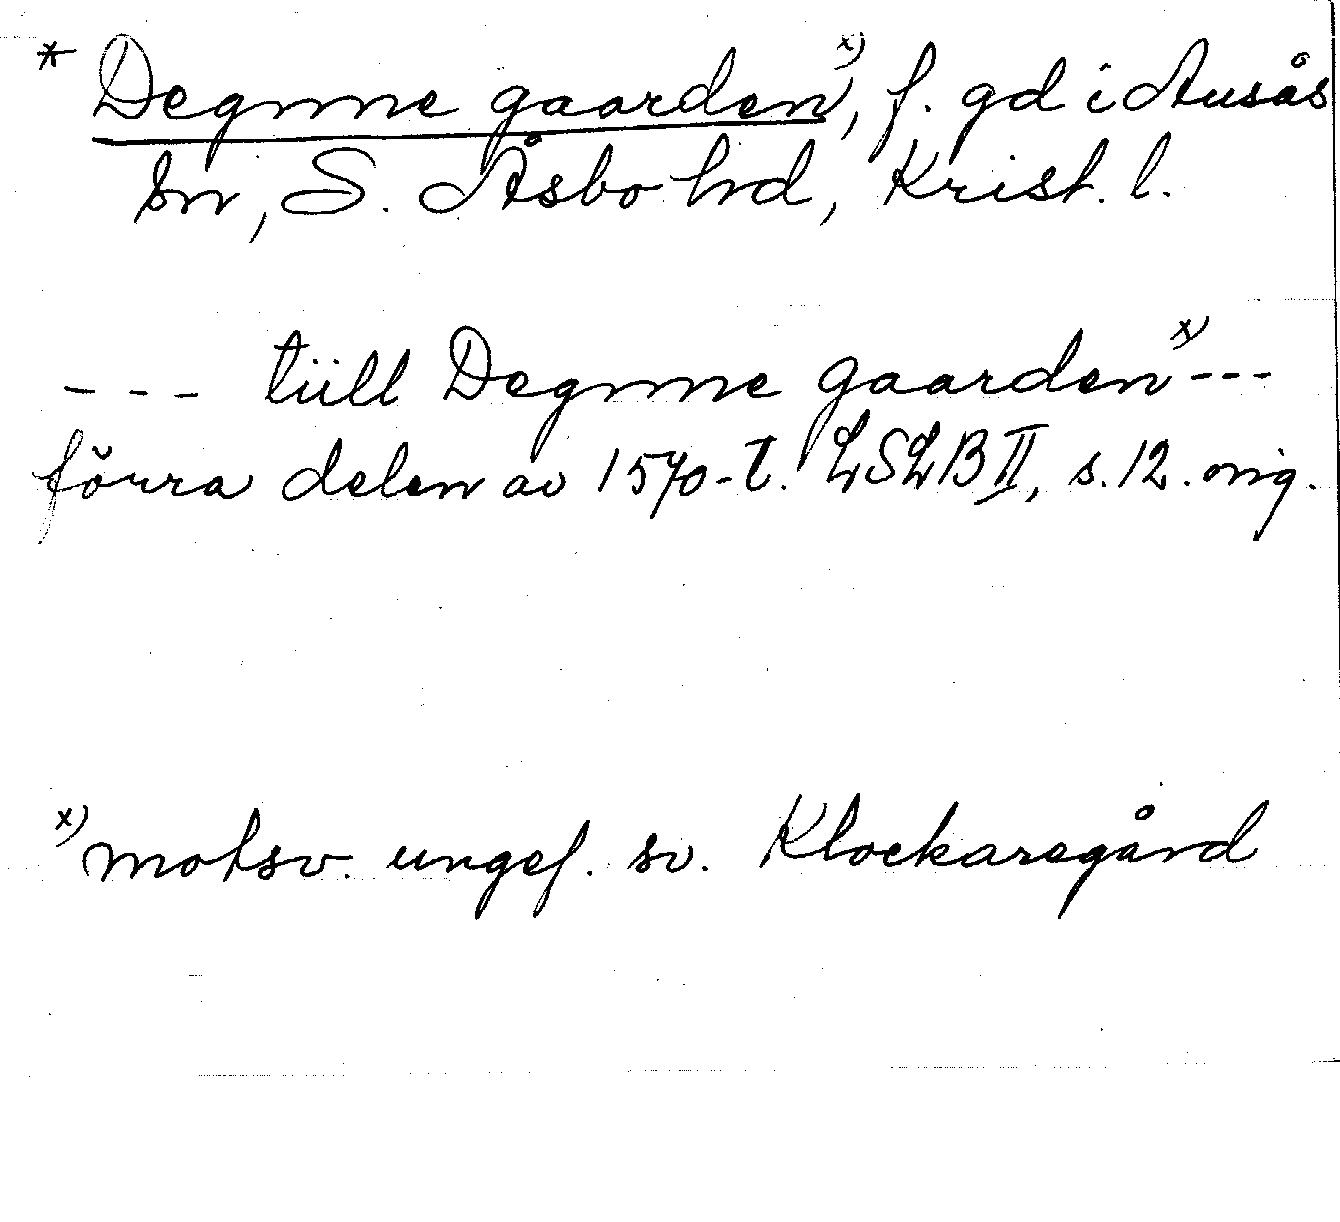 * Degnne gaarden x), f. gd i Ausås
sn, S. Åsbo hd, Krist. l.
--- tiill Degnne gaarden x) ---
förra delen av 1570-t. LSLB II, s. 12. orig.
x) motsv. ungef. sv. Klockaregård